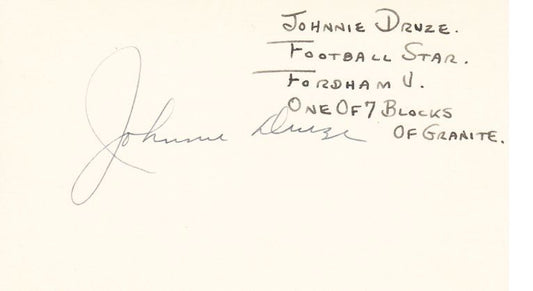 JOHNNIE DRUZE.
FOOTBALL STAR.
FORDHAM U.
ONE OF 7 BLOCKS
OF GRANITE.
Johnnie Druze